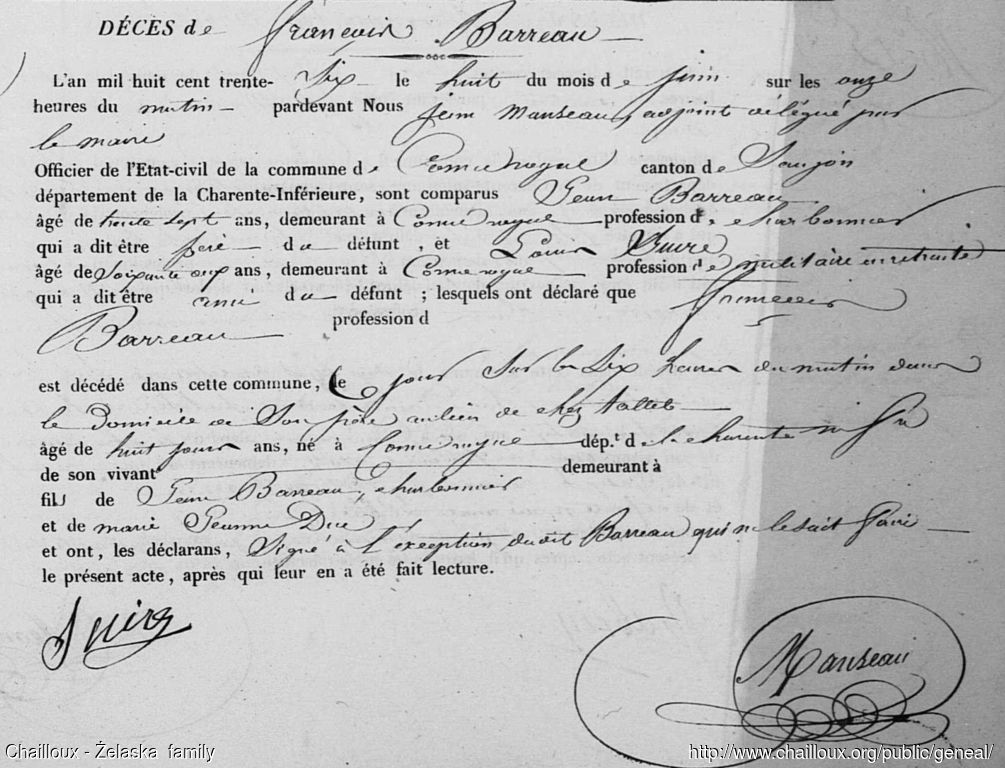 DÉCÈS de François Barreau
L'an mil huit cent trente-Six le huit du mois de juin sur les onze
heures du matin pardevant Nous jean Manseau, adjoint délégué par
le maire
Officier de l'Etat-civil de la commune de Cormeroyal canton de Saujon
département de la Charente-Inférieure, sont comparus Jean Barreau
âgé de trente sept ans, demeurant à Cormeroyal profession de charbonnier
qui a dit être père du défunt, et Louis
âgé de Soixante onze ans, demeurant à Cormeroyal profession de militaire en retraite
qui a dit être ami du défunt; lesquels ont déclaré que François
Barreau profession d
est décédé dans cette commune, ce jour Sur les Six heures du matin dans
le Domicile de Son père au lieu de chez
âgé de huit jours ans, né à Cormeroyal dép.t de la charente infre
de son vivant demeurant à
fils de Jean Barreau, charbonnier
et de marie Jeanne
et ont, les déclarans, Signé à l'exception dudit Barreau qui ne le sait faire
le présent acte, après qui leur en a été fait lecture.
Manseau
Chailloux - Żelaska family
http://www.chailloux.org/public/geneal/